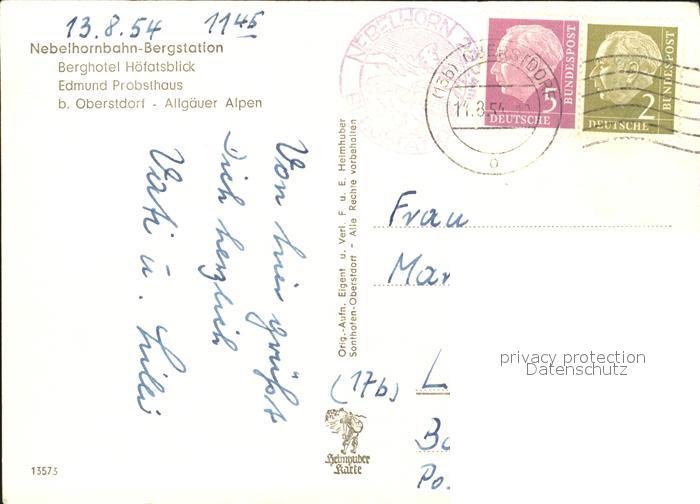 13.8.54 11⁴⁵
Nebelhornbahn-Bergstation
Berghotel Höfatsblick
Edmund Probsthaus
b. Oberstdorf - Allgäuer Alpen
Von hier grüßt
Dich herzlich
u. Lilli
13573
Orig.-Aufn. Eigent. u. Verl. F. u. E. Heimhuber
Sonthofen-Oberstdorf - Alle Rechte vorbehalten
Heimhuber
Karte
NEBELHORN
(13b) OBERSTDORF
14.8.54
5
DEUTSCHE
BUNDESPOST
2
DEUTSCHE
BUNDESPOST
Frau
Mar
(17b) L
Bo
Po.
privacy protection
Datenschutz